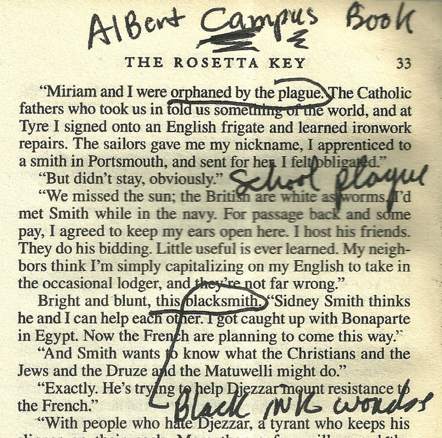 Albert Campus Book
THE ROSETTA KEY 33
“Miriam and I were orphaned by the plague. The Catholic
fathers who took us in told us something of the world, and at
Tyre I signed onto an English frigate and learned ironwork
repairs. The sailors gave me my nickname, I apprenticed to
a smith in Portsmouth, and sent for her. I felt obligated.”
“But didn’t stay, obviously.” School plague
“We missed the sun; the British are white as worms. I’d
met Smith while in the navy. For passage back and some
pay, I agreed to keep my ears open here. I host his friends.
They do his bidding. Little useful is ever learned. My neigh-
bors think I’m simply capitalizing on my English to take in
the occasional lodger, and they’re not far wrong.”
Bright and blunt, this blacksmith. “Sidney Smith thinks
he and I can help each other. I got caught up with Bonaparte
in Egypt. Now the French are planning to come this way.”
“And Smith wants to know what the Christians and the
Jews and the Druze and the Matuwelli might do.”
“Exactly. He’s trying to help Djezzar mount resistance to
the French.” Black ink words
“With people who hate Djezzar, a tyrant who keeps his